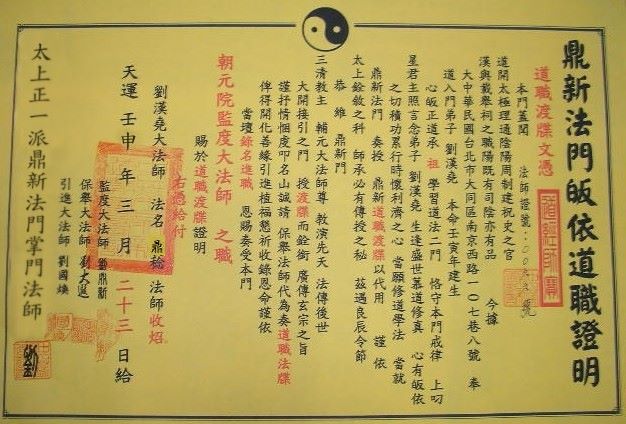 鼎新法門皈依道職證明
道職渡牒文憑
法師證號：
本門蓋聞
道開太極理通陰陽周制建祝史之官
漢典載舉祠之職陽既有司陰亦有品 今據
大中華民國台北市大同區南京西路一0七巷八號 奉
道入門弟子 劉漢堯 本命壬寅年建生
心皈正道承 祖 學習道法二門 恪守本門戒律 上叩
星君主照言念弟子 劉漢堯 生逢盛世慕道修真 心有皈依
之切積功累行時懷利濟之心 當願修道學法 當就
鼎新法門 奏授 鼎新道職渡牒以代用 謹依
太上銓敘之科 師承必有傳授之秘 茲遇良辰令節
恭維 鼎新門
三清教主 輔元大法師尊 教演先天 法傳後世
大開接引之門 授渡牒而銓銜 廣傳玄宗之旨
謹抒情悃虔叩名山誠請 保舉法師代為奏道職法牒
俾得開化善緣引進植福懇祈收錄恩命謹依
當壇錄名進職 恩賜奏受本門
朝元院監度大法師 之職
賜於道職渡牒證明
右憑給付
劉漢堯大法師 法名 鼎稔 法師收炤
天運 壬申 年 三 月 二十三 日給
監度大法師 劉鼎新
保舉大法師
引進大法師 劉國煥
太上正一派鼎新法門掌門法師